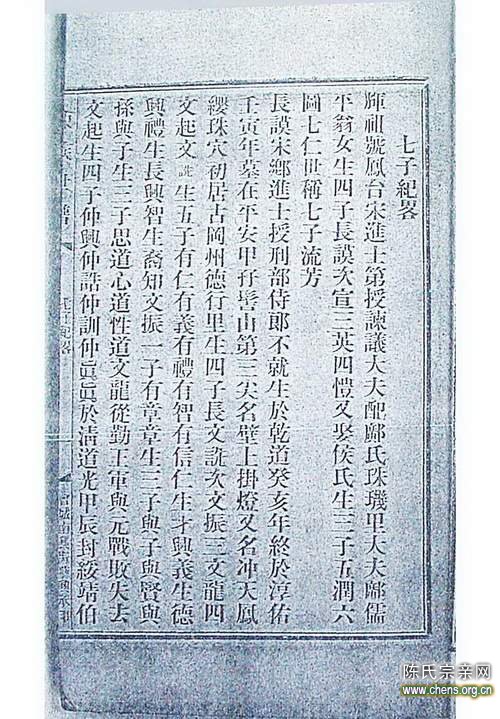 七子紀畧
輝祖號鳳台宋進士第授諫議大夫配鄺氏珠璣甲大夫鄺儒
平翁女生四子長謨次宣三英四愷又娶侯氏生三子五潤六
圖七仁世稱七子流芳
長謨宋鄉進士授刑部侍郎不就生於乾道癸亥年終於淳佑
壬寅年墓在平安甲孖髻山第三尖名壁上掛燈又名冲天鳳
纓珠穴初居古岡州德行里生四子長文詵次文振三文龍四
文起文詵生五子有仁有義有禮有智有信仁生才興義生德
興禮生長興智生裔知文振一子有章章生三子與子與賢與
孫與子生三子思道心道性道文龍從勤王軍與元戰敗失去
文起生四子仲興仲誥仲訓仲眞眞於清道光甲辰封綏靖伯
陈氏宗亲网
www.chens.org.cn